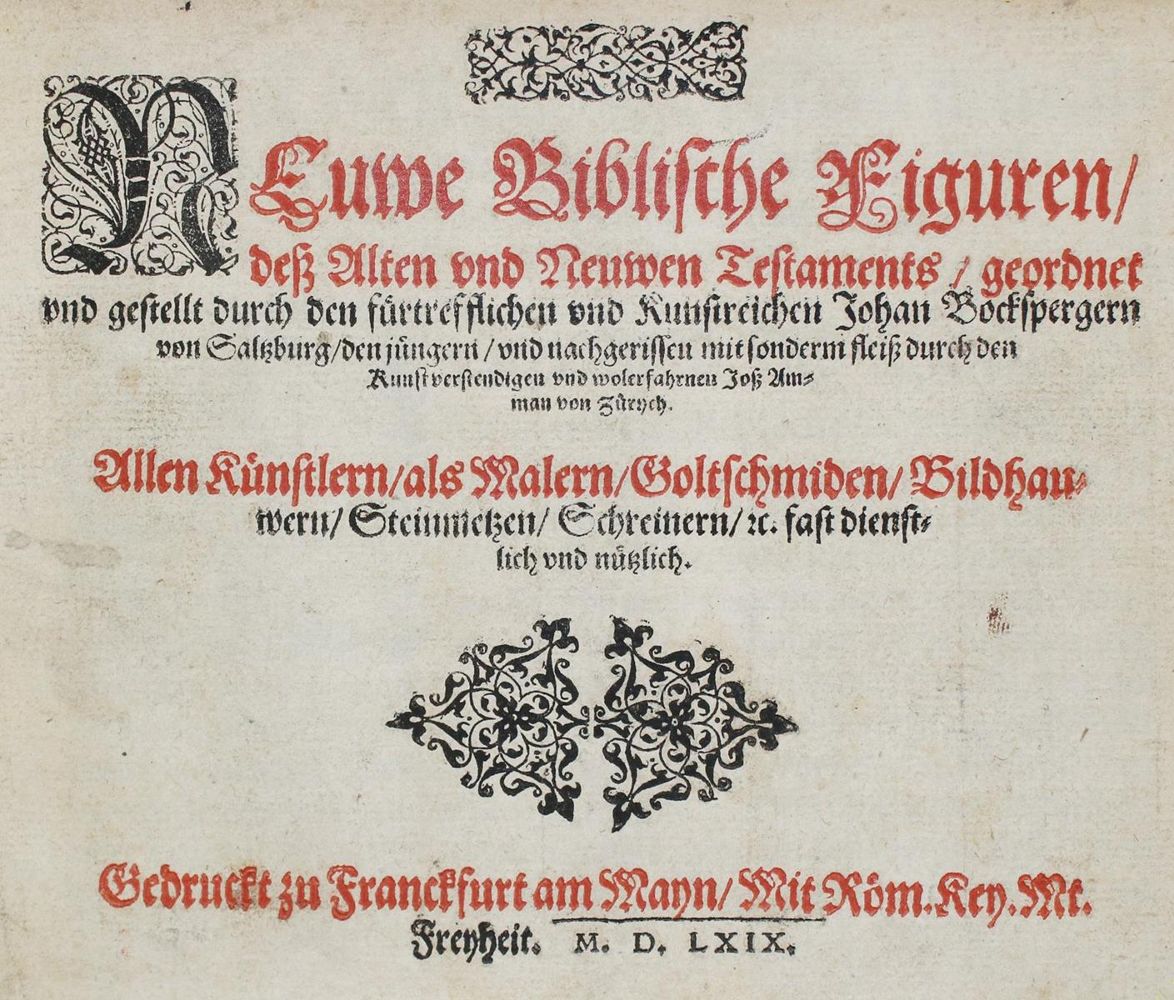 NEuwe Biblische Figuren/
deß Alten vnd Neuwen Testaments / geordnet
vnd gestellt durch den fürtrefflichen vnd Kunstreichen Johan Bockspergern
von Saltzburg/den jüngern/ vnd nachgerissen mit sonderm fleiß durch den
Kunstverstendigen vnd wolerfahrnen Joß Am⸗
man von Zürych.
Allen Künstlern/als Malern/Goltschmiden/ Bildhau⸗
wern/ Steinmetzen/ Schreinern/ ꝛc. fast dienst⸗
lich vnd nützlich.
Gedruckt zu Franckfurt am Mayn/ Mit Röm. Key. Mt.
Freyheit. M. D. LXIX.